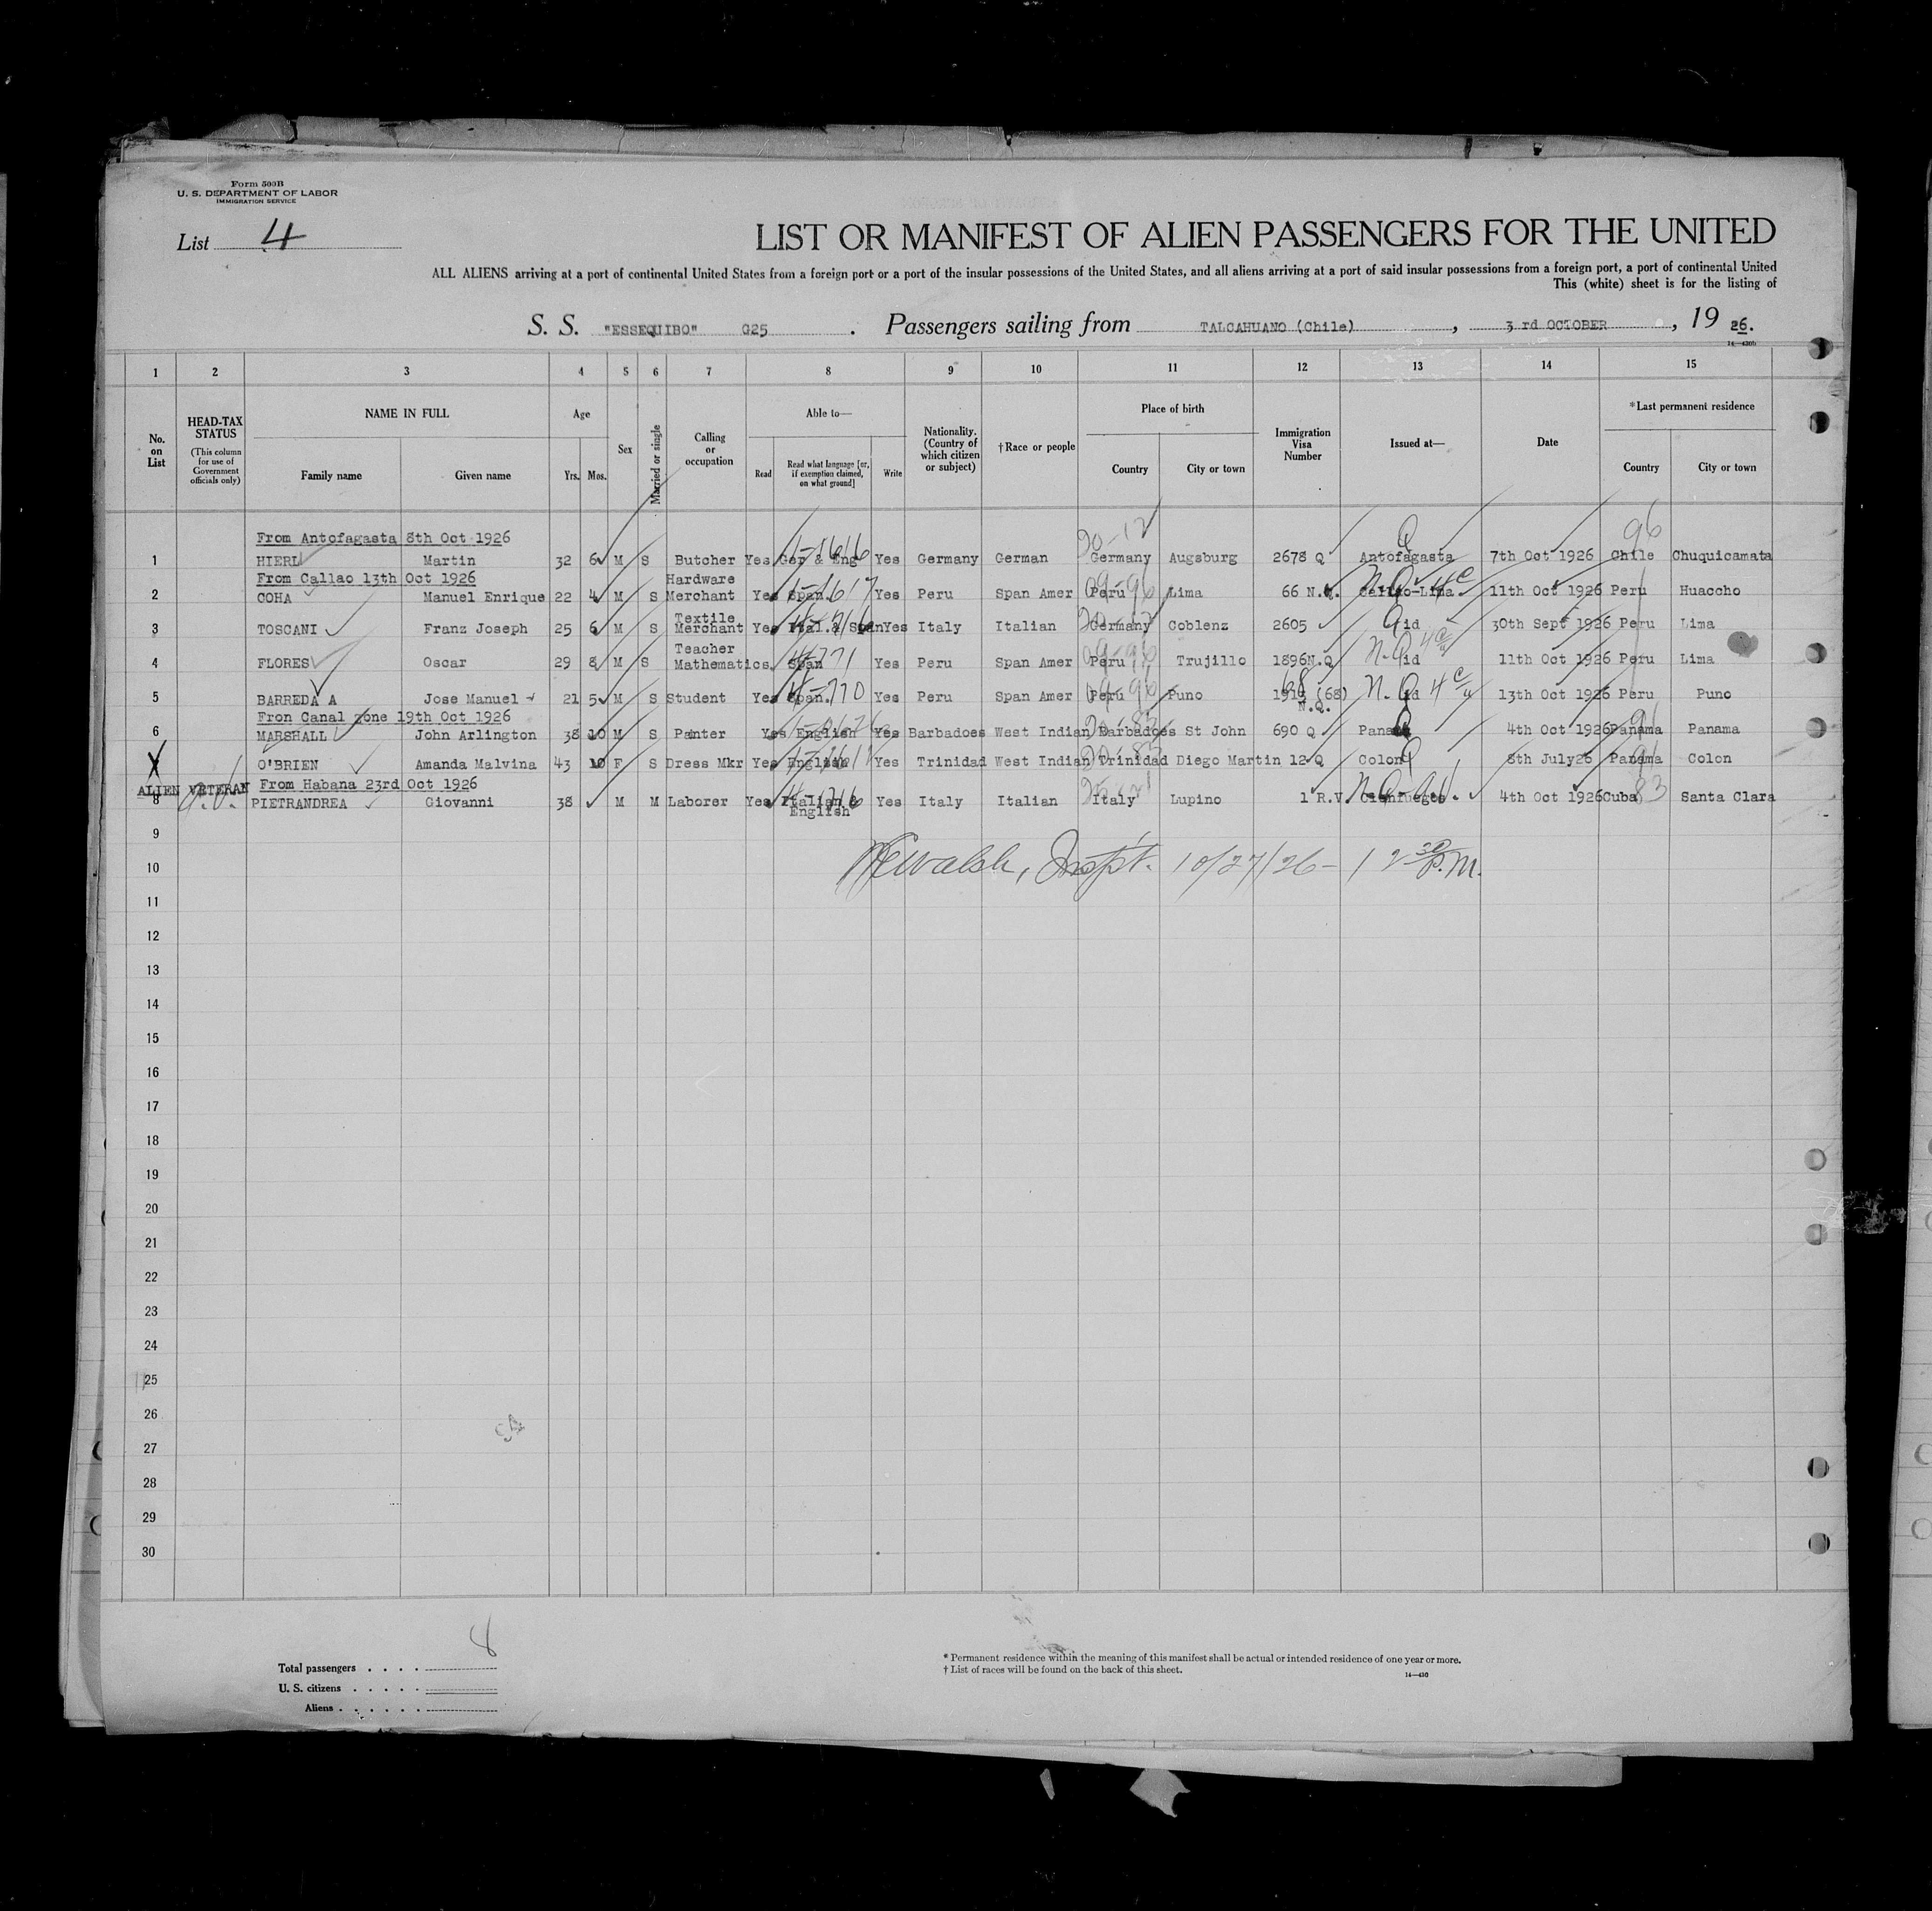 Form 500B
U. S. DEPARTMENT OF LABOR
IMMIGRATION SERVICE
List 4
LIST OR MANIFEST OF ALIEN PASSENGERS FOR THE UNITED
ALL ALIENS arriving at a port of continental United States from a foreign port or a port of the insular possessions of the United States, and all aliens arriving at a port of said insular possessions from a foreign port, a port of continental United
This (white) sheet is for the listing of
S. S. "ESSEQUIBO" G25. Passengers sailing from TALCAHUANO (Chile), 3 rd OCTOBER, 19 26.
1 2 3 4 5 6 7 8 9 10 11 12 13 14 15
No. on List
HEAD-TAX STATUS (This column for use of Government officials only)
NAME IN FULL Family name Given name
Age Yrs. Mos.
Sex
Married or single
Calling or occupation
Able to— Read Read what language [or, if exemption claimed, on what ground] Write
Nationality. (Country of which citizen or subject)
†Race or people
Place of birth Country City or town
Immigration Visa Number
Issued at—
Date
*Last permanent residence Country City or town
From Antofagasta 8th Oct 1926
1 HIERL Martin 32 6 M S Butcher Yes Ger & Eng Yes Germany German Germany Augsburg 2678 Q Antofagasta 7th Oct 1926 Chile Chuquicamata
From Callao 13th Oct 1926
2 COHA Manuel Enrique 22 4 M S Hardware Merchant Yes Span Yes Peru Span Amer Peru Lima 66 N.Q. Callao-Lima 11th Oct 1926 Peru Huaccho
3 TOSCANI Franz Joseph 25 6 M S Textile Merchant Yes Ital.& Span Yes Italy Italian Germany Coblenz 2605 id 30th Sept 1926 Peru Lima
4 FLORES Oscar 29 8 M S Teacher Mathematics Span Yes Peru Span Amer Peru Trujillo 1896 N.Q id 11th Oct 1926 Peru Lima
5 BARREDA A Jose Manuel 21 5 M S Student Yes Span. Yes Peru Span Amer Peru Puno (68) N.Q. id 13th Oct 1926 Peru Puno
Fron Canal zone 19th Oct 1926
6 MARSHALL John Arlington 38 10 M S Panter Yes English Yes Barbadoes West Indian Barbadoes St John 690 Q Panama 4th Oct 1926 Panama Panama
O'BRIEN Amanda Malvina 43 10 F S Dress Mkr Yes English Yes Trinidad West Indian Trinidad Diego Martin 12 Q Colon 8th July26 Panama Colon
From Habana 23rd Oct 1926
ALIEN VETERAN
8 PIETRANDREA Giovanni 38 M M Laborer Yes Italian & English Yes Italy Italian Italy Lupino 1 R.V. Cienfuegos 4th Oct 1926 Cuba Santa Clara
9
10 Walsh, Inspt. 10/27/26 - 12 30 P.M.
11
12
13
14
15
16
17
18
19
20
21
22
23
24
25
26
27
28
29
30
Total passengers . . . . 8
U. S. citizens . . . . .
Aliens . . . . . .
* Permanent residence within the meaning of this manifest shall be actual or intended residence of one year or more.
† List of races will be found on the back of this sheet.
14—430